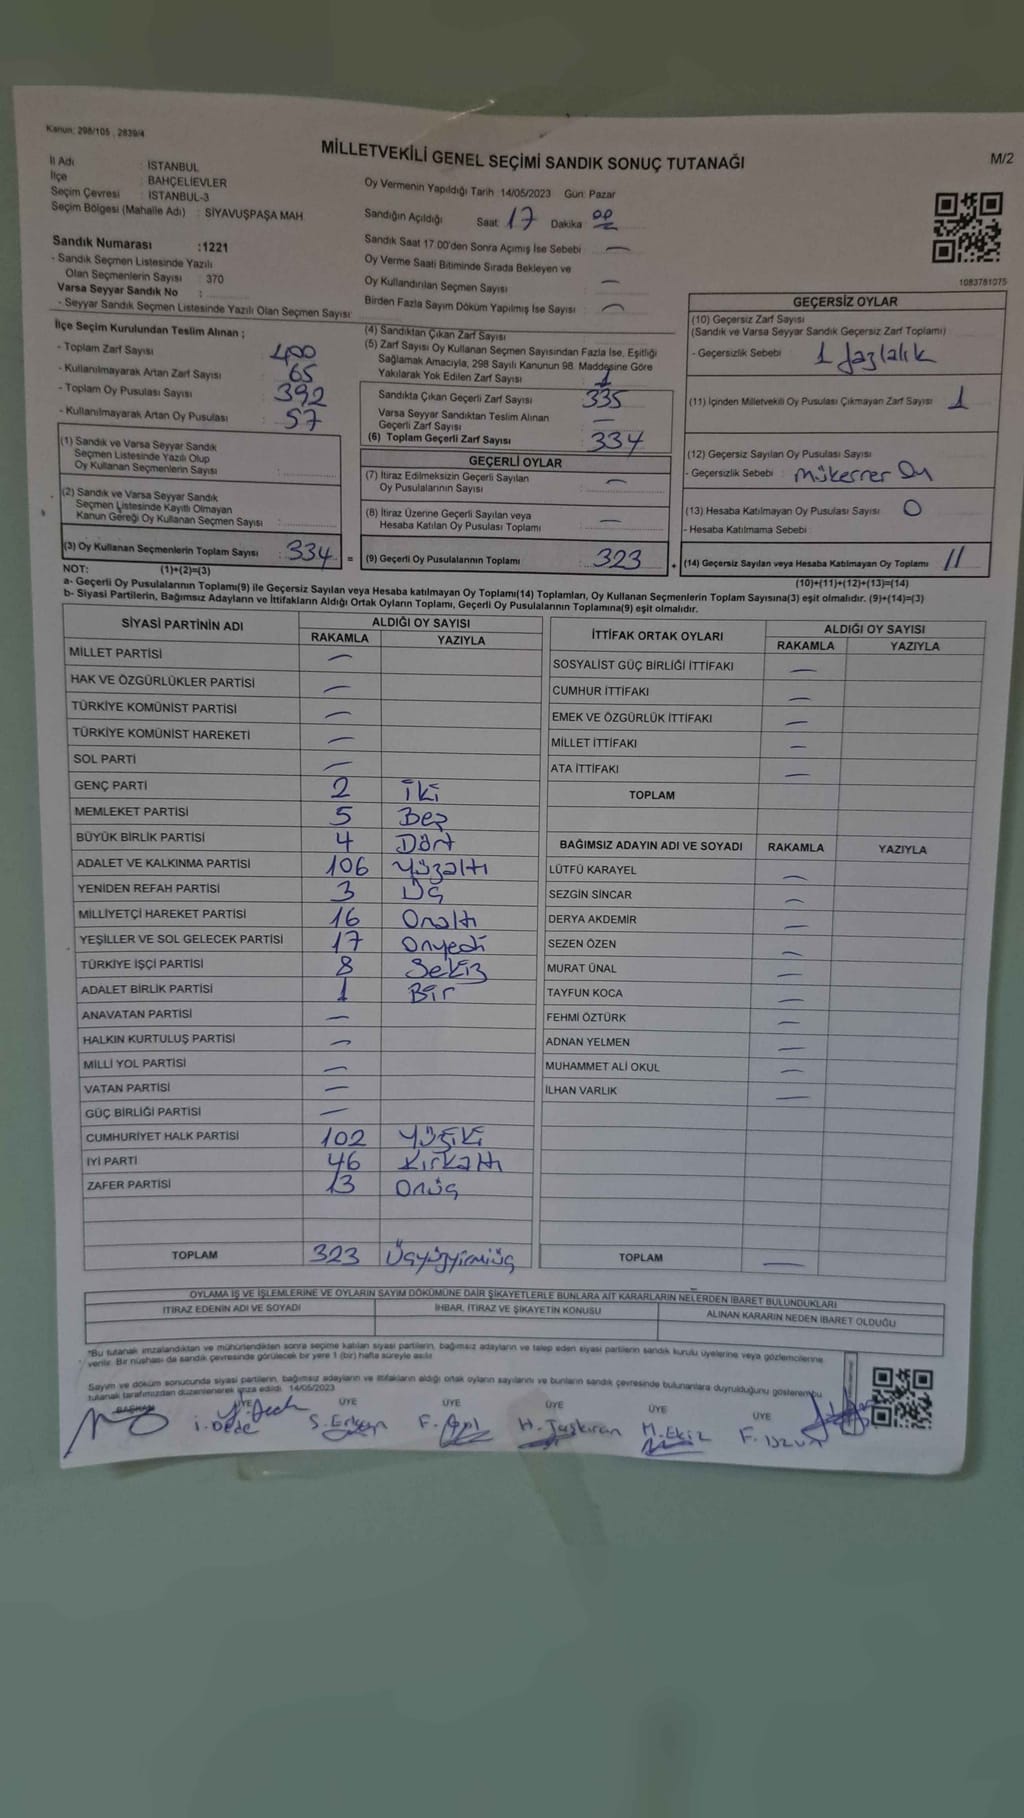 Kanun: 298/105 , 2839/4
MİLLETVEKİLİ GENEL SEÇİMİ SANDIK SONUÇ TUTANAĞI
M/2
İl Adı : İSTANBUL
İlçe : BAHÇELİEVLER
Seçim Çevresi : İSTANBUL-3
Seçim Bölgesi (Mahalle Adı) : SİYAVUŞPAŞA MAH
Sandık Numarası :1221
- Sandık Seçmen Listesinde Yazılı
Olan Seçmenlerin Sayısı : 370
Varsa Seyyar Sandık No :
- Seyyar Sandık Seçmen Listesinde Yazılı Olan Seçmen Sayısı:
Oy Vermenin Yapıldığı Tarih 14/05/2023 Gün: Pazar
Sandığın Açıldığı Saat: 17 Dakika 00
Sandık Saat 17.00'den Sonra Açımış İse Sebebi : —
Oy Verme Saati Bitiminde Sırada Bekleyen ve
Oy Kullandırılan Seçmen Sayısı : —
Birden Fazla Sayım Döküm Yapılmış İse Sayısı : —
1083781075
İlçe Seçim Kurulundan Teslim Alınan ;
- Toplam Zarf Sayısı : 400
- Kullanılmayarak Artan Zarf Sayısı : 65
- Toplam Oy Pusulası Sayısı : 392
- Kullanılmayarak Artan Oy Pusulası : 57
(1) Sandık ve Varsa Seyyar Sandık
Seçmen Listesinde Yazılı Olup
Oy Kullanan Seçmenlerin Sayısı :
(2) Sandık ve Varsa Seyyar Sandık
Seçmen Listesinde Kayıtlı Olmayan
Kanun Gereği Oy Kullanan Seçmen Sayısı :
(3) Oy Kullanan Seçmenlerin Toplam Sayısı : 334 =
(4) Sandıktan Çıkan Zarf Sayısı :
(5) Zarf Sayısı Oy Kullanan Seçmen Sayısından Fazla İse, Eşitliği
Sağlamak Amacıyla, 298 Sayılı Kanunun 98. Maddesine Göre
Yakılarak Yok Edilen Zarf Sayısı : 1
Sandıkta Çıkan Geçerli Zarf Sayısı : 335
Varsa Seyyar Sandıktan Teslim Alınan
Geçerli Zarf Sayısı : —
(6) Toplam Geçerli Zarf Sayısı : 334
GEÇERLİ OYLAR
(7) İtiraz Edilmeksizin Geçerli Sayılan
Oy Pusulalarının Sayısı : —
(8) İtiraz Üzerine Geçerli Sayılan veya
Hesaba Katılan Oy Pusulası Toplamı : —
(9) Geçerli Oy Pusulalarının Toplamı : 323 +
GEÇERSİZ OYLAR
(10) Geçersiz Zarf Sayısı
(Sandık ve Varsa Seyyar Sandık Geçersiz Zarf Toplamı) :
- Geçersizlik Sebebi : 1 fazlalık
(11) İçinden Milletvekili Oy Pusulası Çıkmayan Zarf Sayısı : 1
(12) Geçersiz Sayılan Oy Pusulası Sayısı :
- Geçersizlik Sebebi : mükerrer Oy
(13) Hesaba Katılmayan Oy Pusulası Sayısı : 0
- Hesaba Katılmama Sebebi :
(14) Geçersiz Sayılan veya Hesaba Katılmayan Oy Toplamı : 11
NOT: (1)+(2)=(3)
(10)+(11)+(12)+(13)=(14)
a- Geçerli Oy Pusulalarının Toplamı(9) ile Geçersiz Sayılan veya Hesaba katılmayan Oy Toplamı(14) Toplamları, Oy Kullanan Seçmenlerin Toplam Sayısına(3) eşit olmalıdır. (9)+(14)=(3)
b- Siyasi Partilerin, Bağımsız Adayların ve İttifakların Aldığı Ortak Oyların Toplamı, Geçerli Oy Pusulalarının Toplamına(9) eşit olmalıdır.
SİYASİ PARTİNİN ADI ALDIĞI OY SAYISI
RAKAMLA YAZIYLA
MİLLET PARTİSİ —
HAK VE ÖZGÜRLÜKLER PARTİSİ —
TÜRKİYE KOMÜNİST PARTİSİ —
TÜRKİYE KOMÜNİST HAREKETİ —
SOL PARTİ —
GENÇ PARTİ 2 İki
MEMLEKET PARTİSİ 5 Beş
BÜYÜK BİRLİK PARTİSİ 4 Dört
ADALET VE KALKINMA PARTİSİ 106 Yüzaltı
YENİDEN REFAH PARTİSİ 3 Üç
MİLLİYETÇİ HAREKET PARTİSİ 16 Onaltı
YEŞİLLER VE SOL GELECEK PARTİSİ 17 Onyedi
TÜRKİYE İŞÇİ PARTİSİ 8 Sekiz
ADALET BİRLİK PARTİSİ 1 Bir
ANAVATAN PARTİSİ —
HALKIN KURTULUŞ PARTİSİ —
MİLLİ YOL PARTİSİ —
VATAN PARTİSİ —
GÜÇ BİRLİĞİ PARTİSİ —
CUMHURİYET HALK PARTİSİ 102 Yüziki
İYİ PARTİ 46 Kırkaltı
ZAFER PARTİSİ 13 Onüç
TOPLAM 323 Üçyüzyirmiüç
İTTİFAK ORTAK OYLARI ALDIĞI OY SAYISI
RAKAMLA YAZIYLA
SOSYALİST GÜÇ BİRLİĞİ İTTİFAKI —
CUMHUR İTTİFAKI —
EMEK VE ÖZGÜRLÜK İTTİFAKI —
MİLLET İTTİFAKI —
ATA İTTİFAKI —
TOPLAM
BAĞIMSIZ ADAYIN ADI VE SOYADI RAKAMLA YAZIYLA
LÜTFÜ KARAYEL —
SEZGİN SİNCAR —
DERYA AKDEMİR —
SEZEN ÖZEN —
MURAT ÜNAL —
TAYFUN KOCA —
FEHMİ ÖZTÜRK —
ADNAN YELMEN —
MUHAMMET ALİ OKUL —
İLHAN VARLIK —
TOPLAM —
OYLAMA İŞ VE İŞLEMLERİNE VE OYLARIN SAYIM DÖKÜMÜNE DAİR ŞİKAYETLERLE BUNLARA AİT KARARLARIN NELERDEN İBARET BULUNDUKLARI
İTİRAZ EDENİN ADI VE SOYADI İHBAR, İTİRAZ VE ŞİKAYETİN KONUSU ALINAN KARARIN NEDEN İBARET OLDUĞU
*Bu tutanak imzalandıktan ve mühürlendikten sonra seçime katılan siyasi partilerin, bağımsız adayların ve talep eden siyasi partilerin sandık kurulu üyelerine veya gözlemcilerine
verilir. Bir nüshası da sandık çevresinde görülecek bir yere 1 (bir) hafta süreyle asılır
Sayım ve döküm sonucunda siyasi partilerin, bağımsız adayların ve ittifakların aldığı ortak oyların sayılarını ve bunların sandık çevresinde bulunanlara duyrulduğunu gösteren bu
tutanak tarafımızdan düzenlenerek imza edildi. 14/05/2023
BAŞKAN ÜYE ÜYE ÜYE ÜYE ÜYE ÜYE
İ. Dede S. Erkan H. Taşkıran M. Ekiz F. Uzun